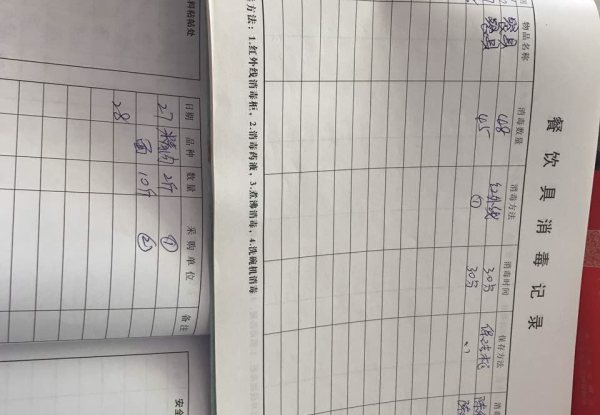 餐饮具消毒记录
物品名称 消毒数量 消毒方法 消毒时间 保存方法 消
餐具 48 红外线 30分 保洁柜
餐具 45 ① 30分 〃
方法：1.红外线消毒柜、2.消毒药液、3.煮沸消毒、4.洗碗机消毒
料粘贴处
日期 品种 数量 采购单位 备注
27 2斤 ①
面 10斤 ②
28
安全